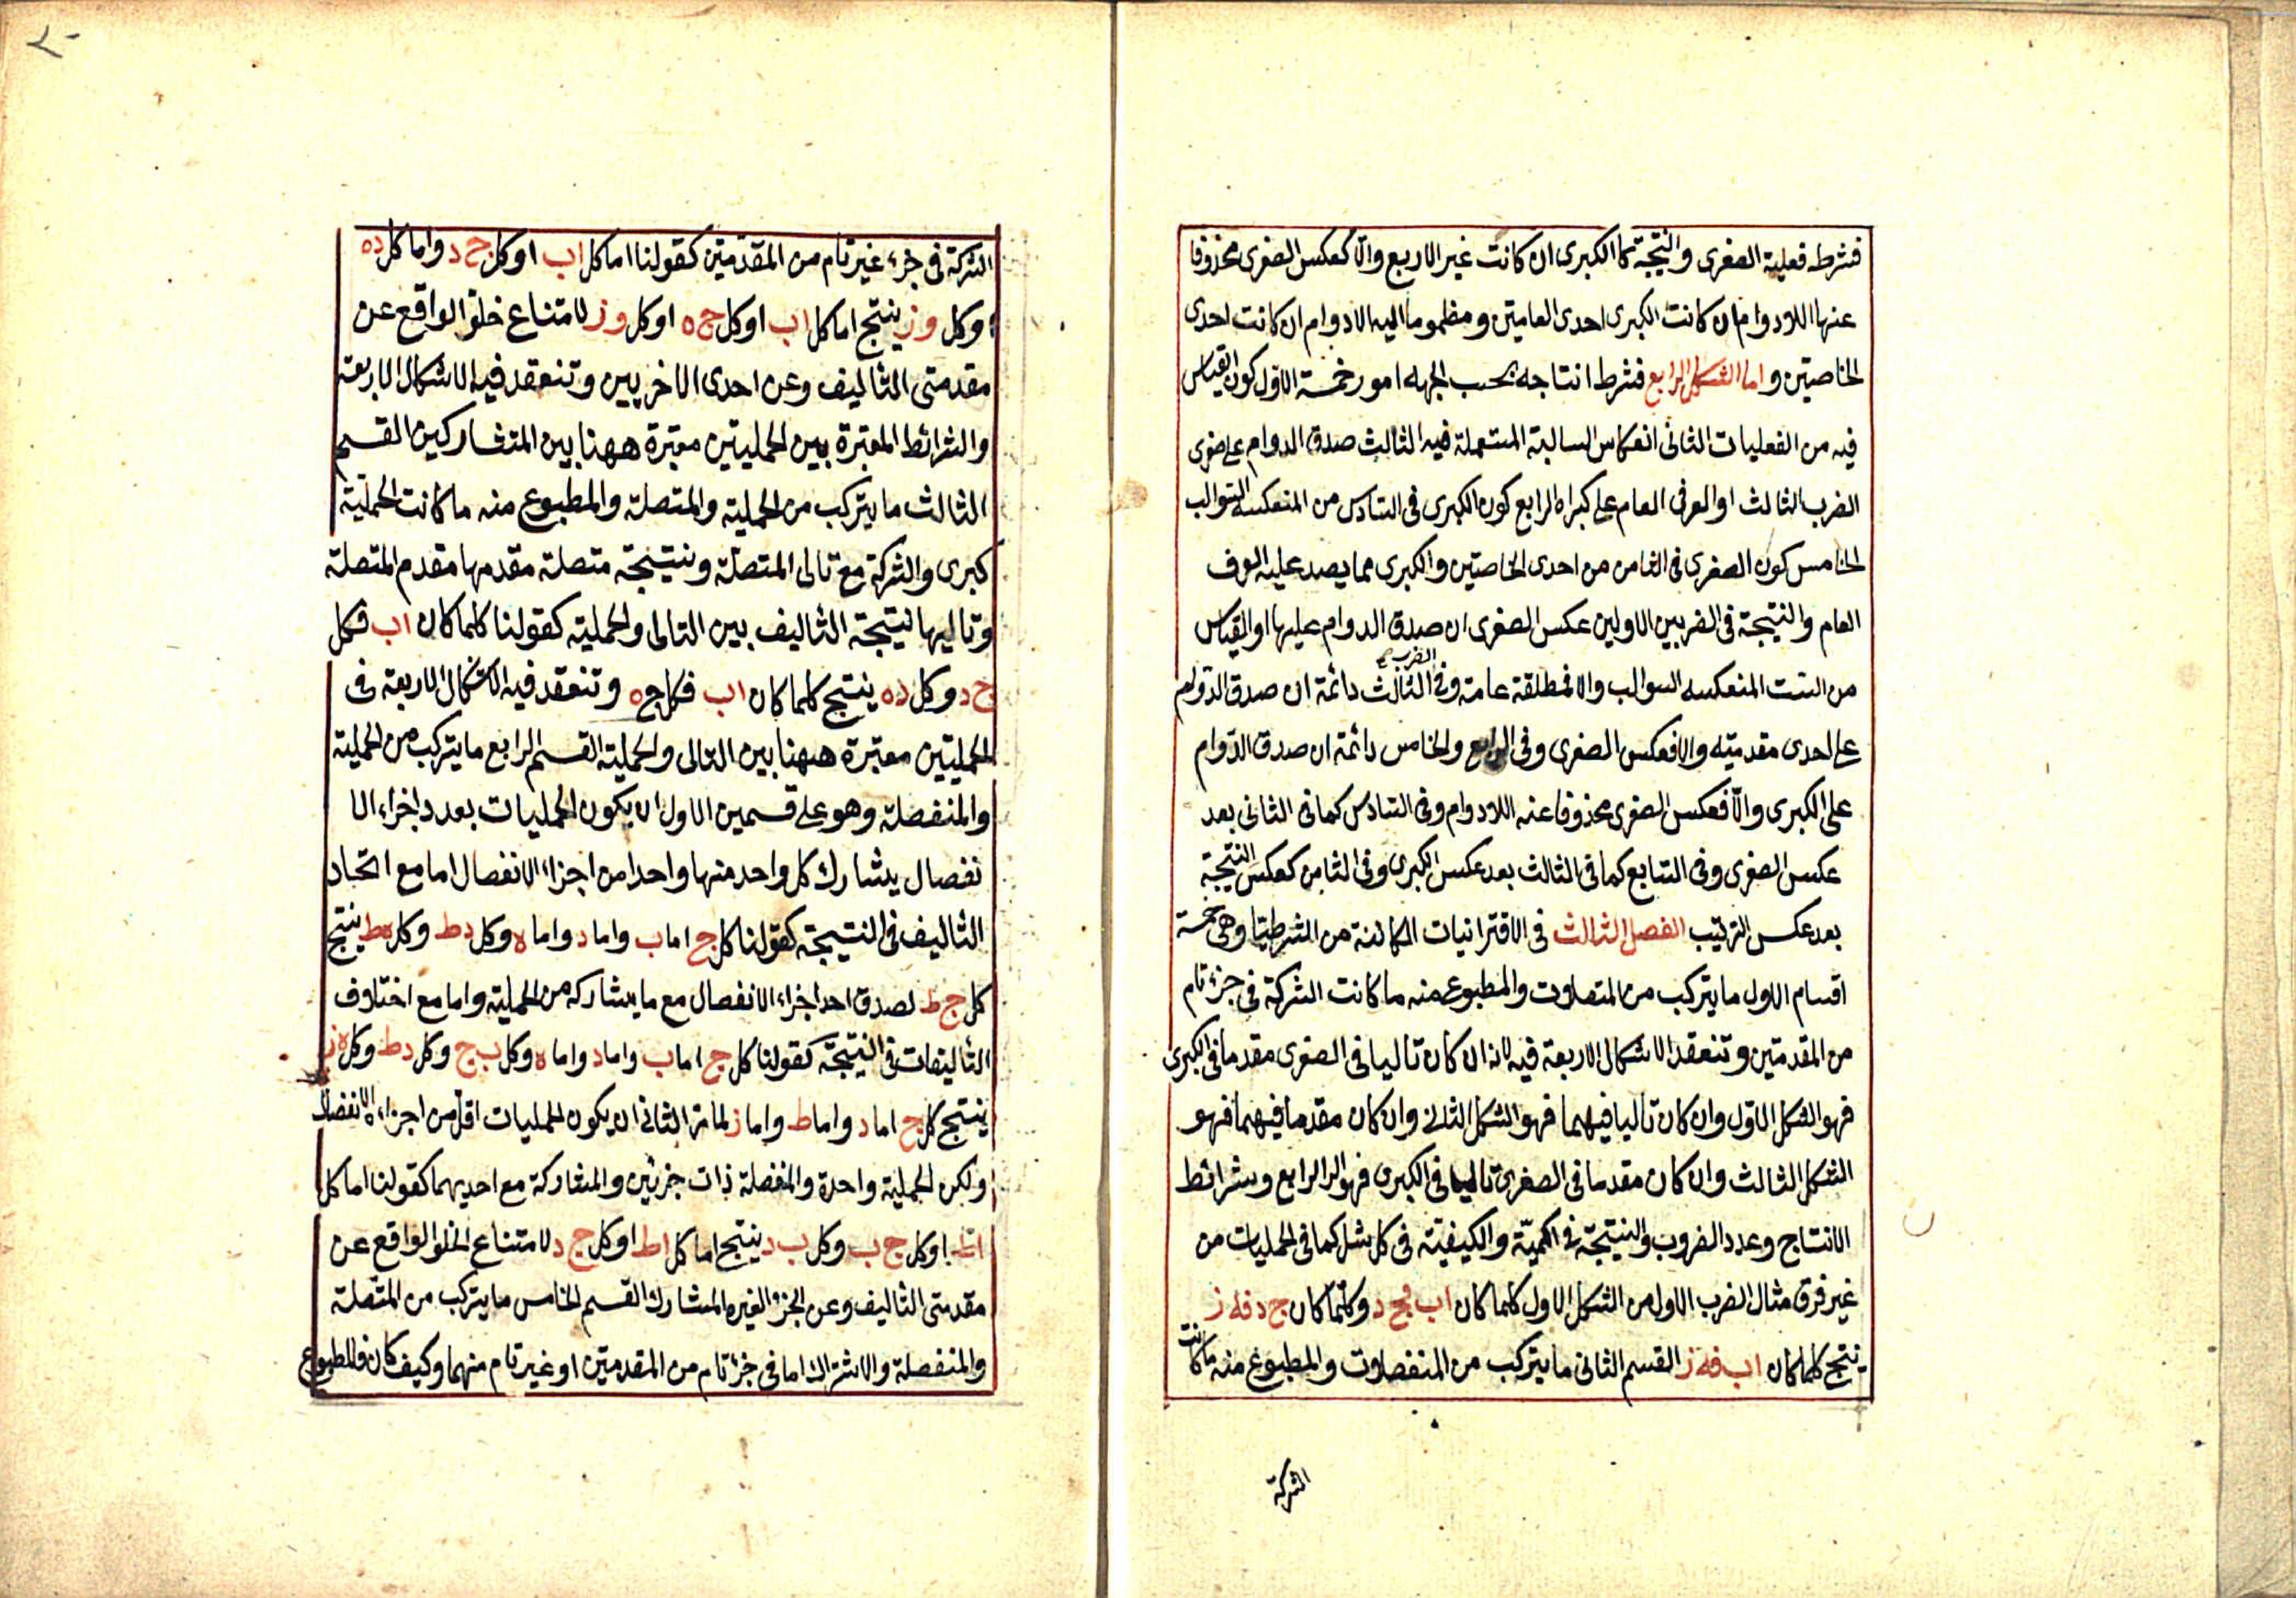 فشرطه فعلية الصغرى والنتيجة كما الكبرى ان كانت غير الاربع والا كعكس الصغرى محذوفا
عنها اللادوام ان كانت الكبرى احدى العامتين ومضموما اليه اللادوام ان كانت احدى
الخاصتين واما الشكل الرابع فشرط انتاجه بحسب الجهه امور خمسة الاول كون القياس
فيه من الفعليات الثانى انعكاس السالبة المستعملة فيه الثالث صدق الدوام على صغرى
الضرب الثالث او العرفى العام على كبراه الرابع كون الكبرى فى السادس من المنعكسه السوالب
الخامس كون الصغرى فى الثامن من احدى الخاصتين والكبرى مما يصد عليه العرف
العام والنتيجة فى الضربين الاولين عكس الصغرى ان صدق الدوام عليها او القياس
من الست المنعكسه السوالب والا فمطلقة عامة وفى الضرب الثالث دائمة ان صدق الدوام
على احدى مقدمتيه والا فعكس الصغرى وفى الرابع والخامس دائمة ان صدق الدوام
على الكبرى والا فعكس الصغرى محذوفا عنه اللادوام وفى السادس كما فى الثانى بعد
عكس الصغرى وفى السابع كما فى الثالث بعد عكس الكبرى وفى الثامن كعكس النتيجة
بعد عكس الترتيب الفصل الثالث فى الاقترانيات الكائنة من الشرطيات وهى خمسة
اقسام الاول ما يتركب من المتصلات والمطبوع منه ما كانت الشركة فى جزء تام
من المقدمتين وتنعقد الاشكال الاربعة فيه لانه ان كان تاليا فى الصغرى مقدما فى الكبرى
فهو الشكل الاول وان كان تاليا فيهما فهو الشكل الثانى وان كان مقدما فيهما فهو
الشكل الثالث وان كان مقدما فى الصغرى تاليا فى الكبرى فهو الرابع وشرائط
الانتاج وعدد الضروب والنتيجة فى الكمية والكيفية فى كل شكل كما فى الحمليات من
غير فرق مثال الضرب الاول من الشكل الاول كلما كان اب فج د وكلما كان ج د فه ز
ينتج كلما كان اب فه ز القسم الثانى ما يتركب من المنفصلات والمطبوع منه ما كانت
الشركة
الشركة فى جزء غير تام من المقدمتين كقولنا اما كل اب او كل ج د واما كل ده
او كل وز ينتج اما كل اب او كل ج ه او كل وز لامتناع خلو الواقع عن
مقدمتى التاليف وعن احدى الاخريين وتنعقد فيه الاشكال الاربعة
والشرائط المعتبرة بين الحمليتين معتبرة ههنا بين المتشاركين القسم
الثالث ما يتركب من الحملية والمتصلة والمطبوع منه ما كانت الحملية
كبرى والشركة مع تالى المتصلة ونتيجته متصلة مقدمها مقدم المتصلة
وتاليها نتيجة التاليف بين التالى والحملية كقولنا كلما كان اب فكل
ج د وكل ده ينتج كلما كان اب فكل ج ه وتنعقد فيه الاشكال الاربعة فى
الحمليتين معتبرة ههنا بين التالى والحملية القسم الرابع ما يتركب من الحملية
والمنفصلة وهو على قسمين الاول ان يكون الحمليات بعدد اجزاء الا
نفصال يشارك كل واحد منها واحدا من اجزاء الانفصال اما مع اتحاد
التاليف فى النتيجة كقولنا كل ج اما ب واما د واما ه وكل دط وكل هط ينتج
كل ج ط لصدق احد اجزاء الانفصال مع ما يشاركه من الحملية واما مع اختلاف
التاليفات فى النتيجة كقولنا كل ج اما ب واما د واما ه وكل ب ج وكل دط وكل ه ز
ينتج كل ج اما د واما ط واما ز لما مر الثانى ان يكون الحمليات اقل من اجزاء الانفصال
ولكن الحملية واحدة والمنفصلة ذات جزئين والمشاركة مع احديهما كقولنا اما كل
اط او كل ج ب وكل ب د ينتج اما كل اط او كل ج د لامتناع الخلو الواقع عن
مقدمتى التاليف وعن الجزء الغير المشارك القسم الخامس ما يتركب من المتصلة
والمنفصلة والاشتراك اما فى جزء تام من المقدمتين او غير تام منهما وكيف كان فالمطبوع